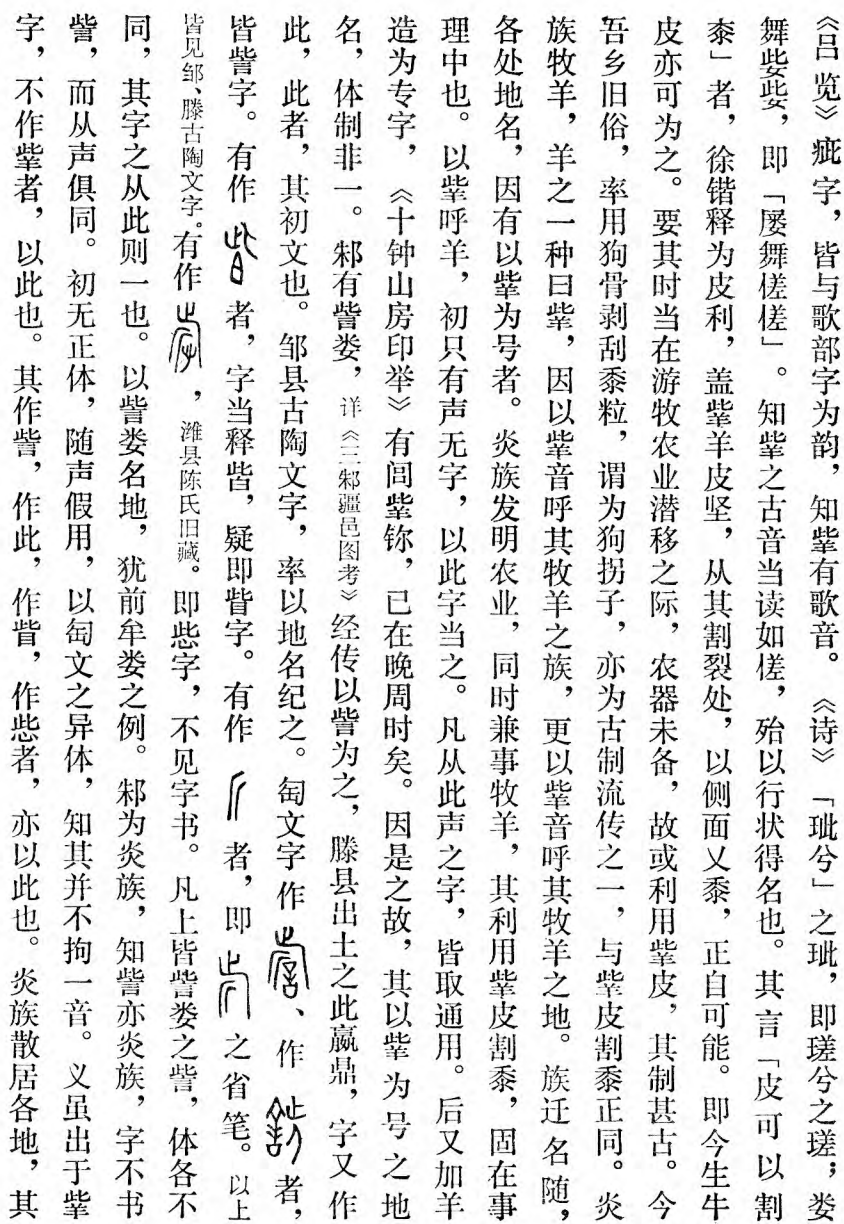 《吕览》疵字，皆与歌部字为韵，知㧘有歌音。《诗》「玼兮」之玼，即瑳兮之瑳；娄
舞姕姕，即「屡舞傞傞」。知羍之古音当读如傞，殆以行状得名也。其言「皮可以割
黍」者，徐锴释为皮利，盖羊皮坚，从其割裂处，以侧面乂黍，正自可能。即今生牛
皮亦可为之。要其时当在游牧农业潜移之际，农器未备，故或利用皮，其制甚古。今
吾乡旧俗，率用狗骨剥刮黍粒，谓为狗拐子，亦为古制流传之一，与皮割黍正同。炎
族牧羊，羊之一种曰，因以音呼其牧羊之族，更以音呼其牧羊之地。族迁名随，
各处地名，因有以为号者。炎族发明农业，同时兼事牧羊，其利用皮割黍，固在事
理中也。以呼羊，初只有声无字，以此字当之。凡从此声之字，皆取通用。后又加羊
造为专字，《十钟山房印举》有闾鉨，已在晚周时矣。因是之故，其以为号之地
名，体制非一。邾有訾娄，详《三邾疆邑图考》经传以訾为之，滕县出土之此嬴鼎，字又作
此，此者，其初文也。邹县古陶文字，率以地名纪之。匋文字作、作者，
皆訾字。有作者，字当释㫮，疑即訾字。有作者，即之省笔。以上
皆见邹、滕古陶文字。有作，潍县陈氏旧藏。即㤅字，不见字书。凡上皆訾娄之訾，体各不
同，其字之从此则一也。以訾娄名地，犹前牟娄之例。邾为炎族，知訾亦炎族，字不书
訾，而从声俱同。初无正体，随声假用，以匋文之异体，知其并不拘一音。义虽出于
字，不作者，以此也。其作訾，作此，作，作者，亦以此也。炎族散居各地，其